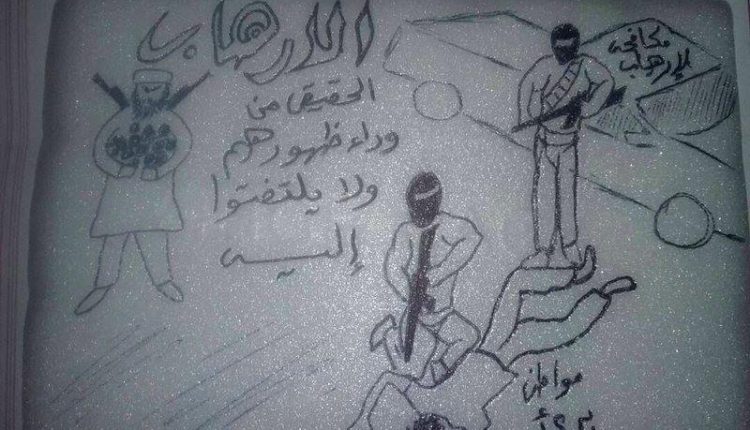 الارهاب
الحقيقي من
وراء ظهورهم
ولا يلتفتوا
إليه
مكافحة
الإرهاب
مواطن
بريء